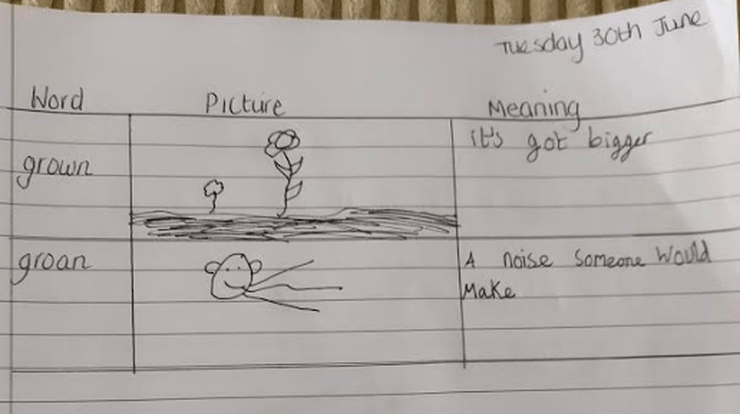 Tuesday 30th June
Word Picture Meaning
grown it's got bigger
groan A noise someone would
Make